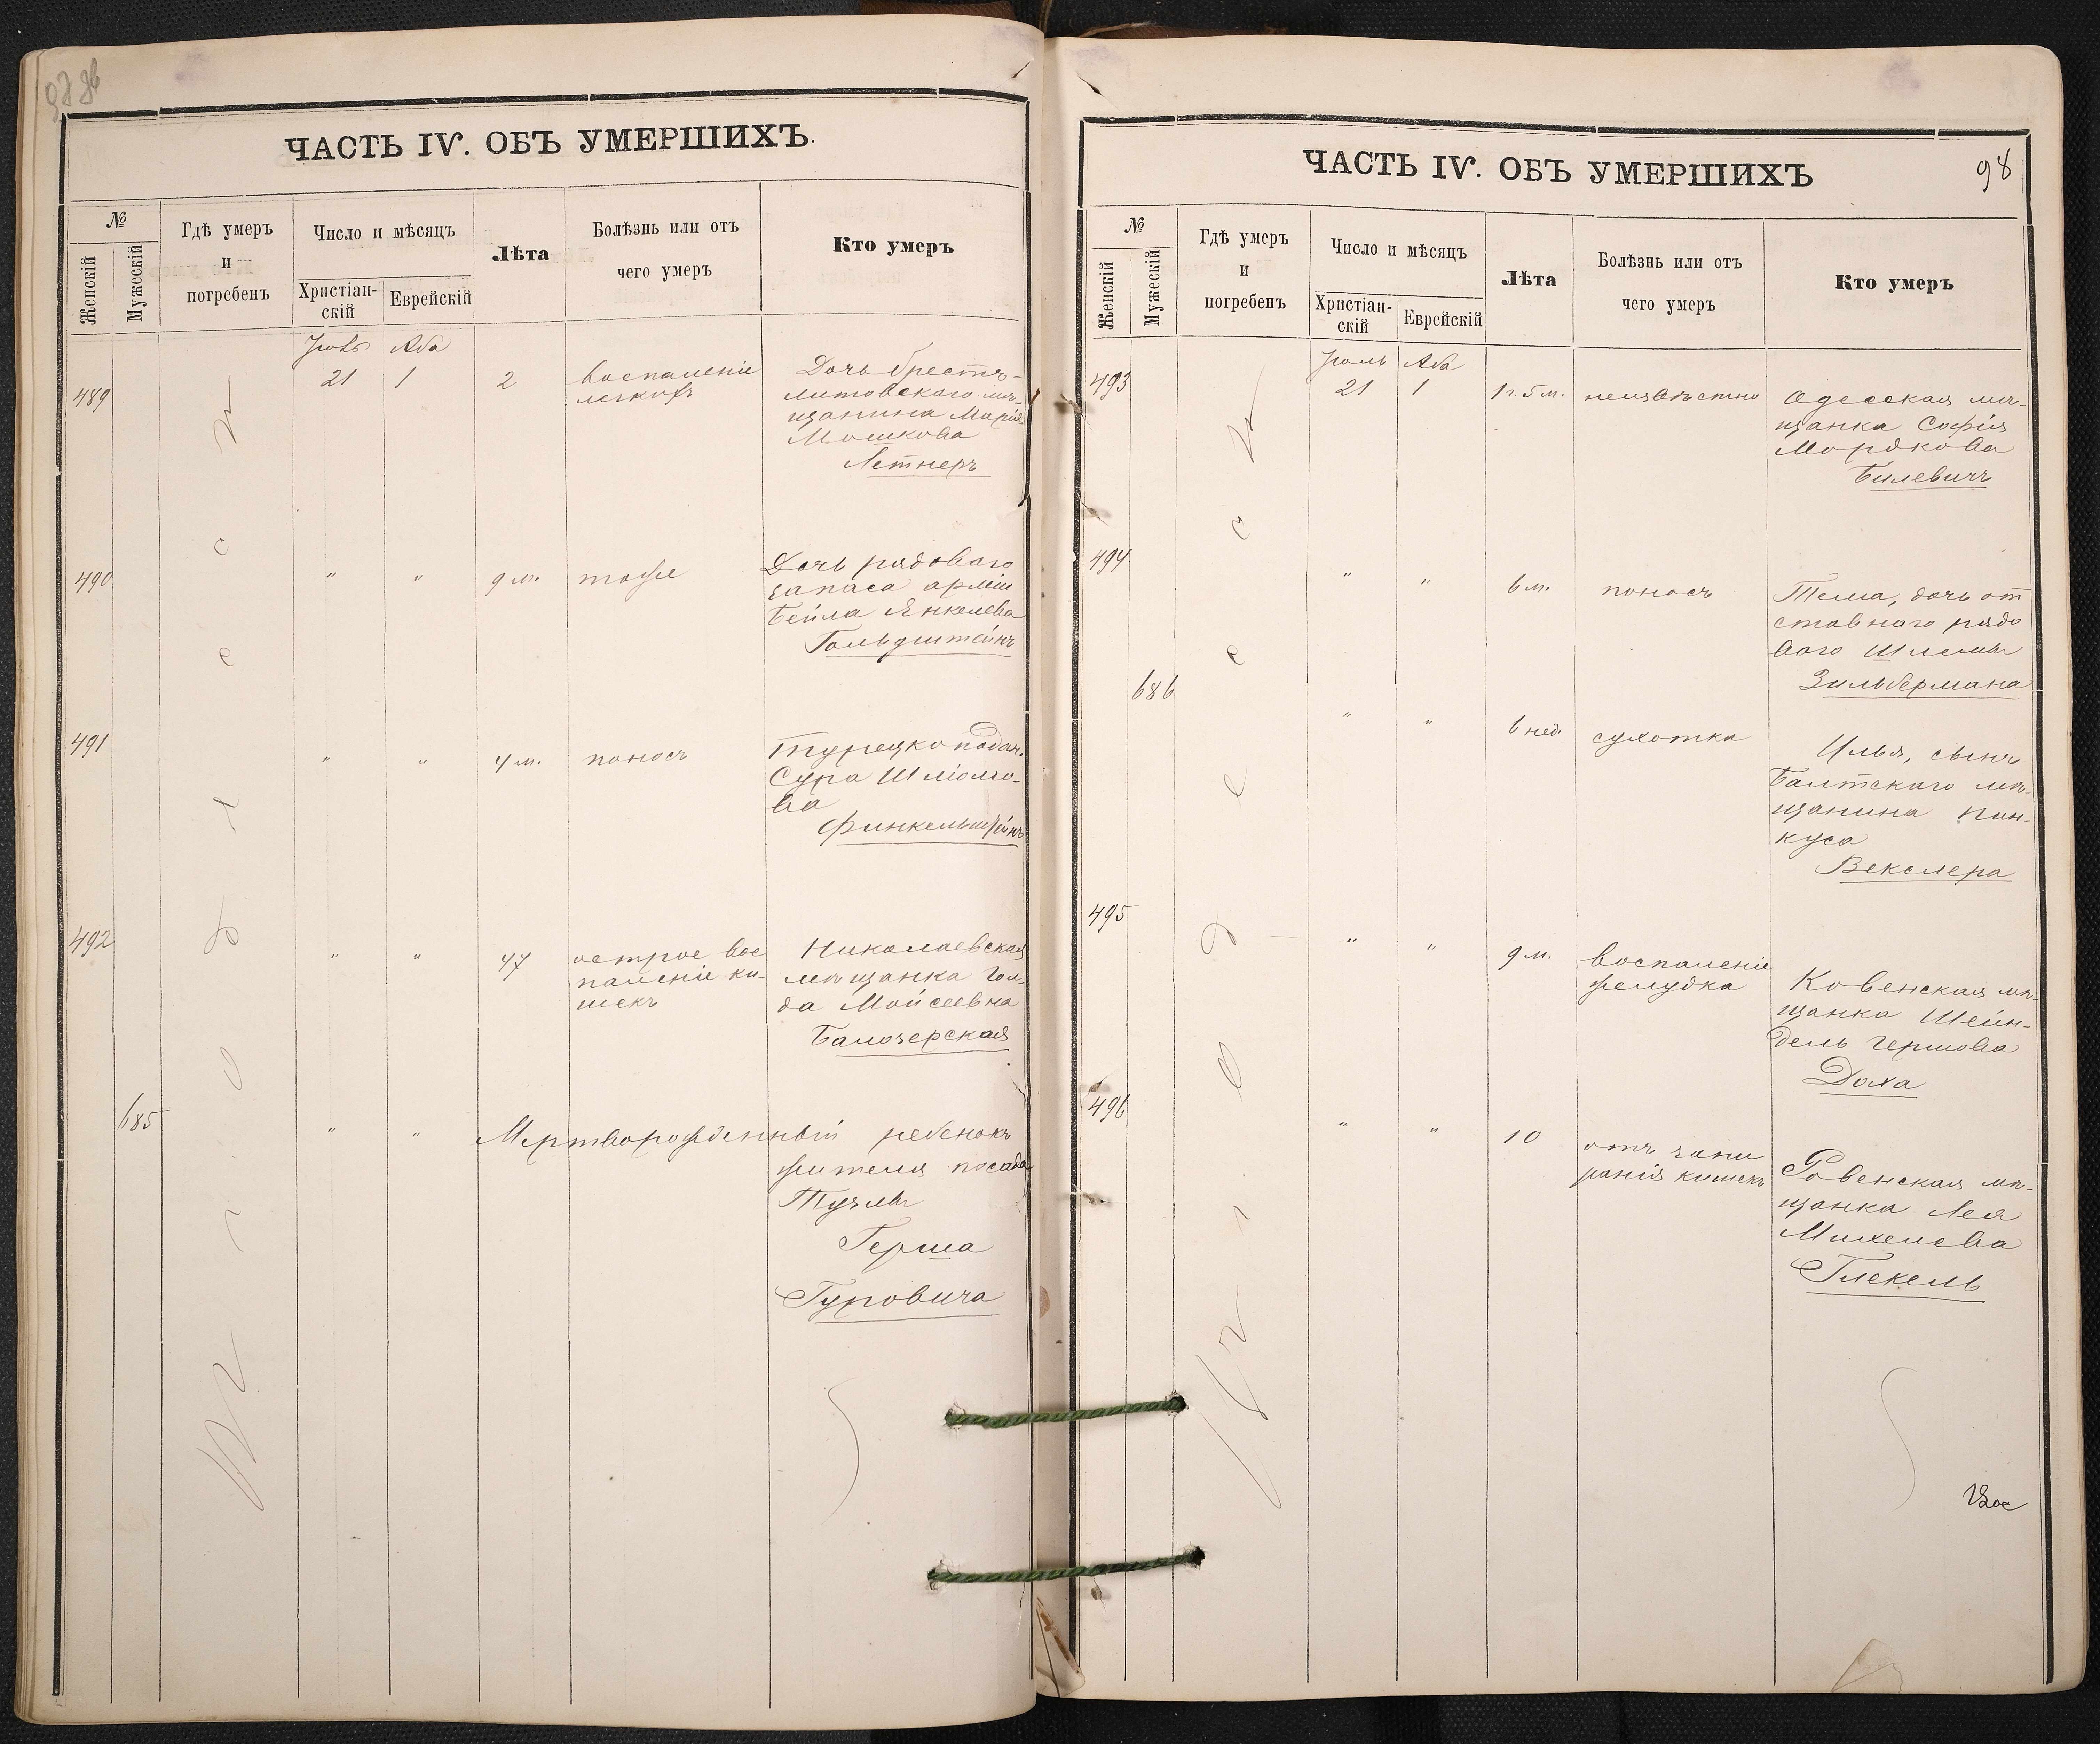 ЧАСТЬ IV. ОБЪ УМЕРШИХЪ.
№
Женскій
Мужескій
Гдѣ умеръ
и
погребенъ
Число и мѣсяцъ
Христіан-
скій
Еврейскій
Лѣта
Болѣзнь или отъ
чего умеръ
Кто умеръ
Въ г. Одессѣ
Іюль Аба
489
21 1
2
воспаленіе
легкихъ
Дочь брестъ-
литовскаго мѣ-
щанина Марія
Мошкова
Летнеръ
490
" "
9 м.
тоже
Дочь рядоваго
запаса арміи
Бейла Янкелева
Гольдштейнъ
491
" "
4 м.
поносъ
Турецкоподан.
Сура Шліомо-
ва
Финкельштейнъ
492
" "
47
острое вос
паленіе ки-
шекъ
Николаевская
мѣщанка Гол
да Мойсеевна
Балочерская
685
" "
Мертворожденный ребенокъ
жителя посада
Тузлы
Герша
Гуровича
ЧАСТЬ IV. ОБЪ УМЕРШИХЪ
98
№
Женскій
Мужескій
Гдѣ умеръ
и
погребенъ
Число и мѣсяцъ
Христіан-
скій
Еврейскій
Лѣта
Болѣзнь или отъ
чего умеръ
Кто умеръ
Въ г. Одессѣ
Іюль Аба
493
21 1
1 г. 5 м.
неизвѣстно
Одесская мѣ-
щанка Софія
Мордкова
Билевичъ
494
" "
6 м.
поносъ
Тема, дочь от
ставного рядо
вого Шлемы
Зильбермана
686
" "
6 нед.
сухотка
Илья, сынъ
Балтскаго мѣ-
щанина Пин-
куса
Векслера
495
" "
9 м.
воспаленіе
желудка
Ковенская мѣ-
щанка Шейн-
дель Гершова
Доха
496
" "
10
отъ
кишекъ
Ровенская мѣ-
щанка Лея
Михелева
Глекель